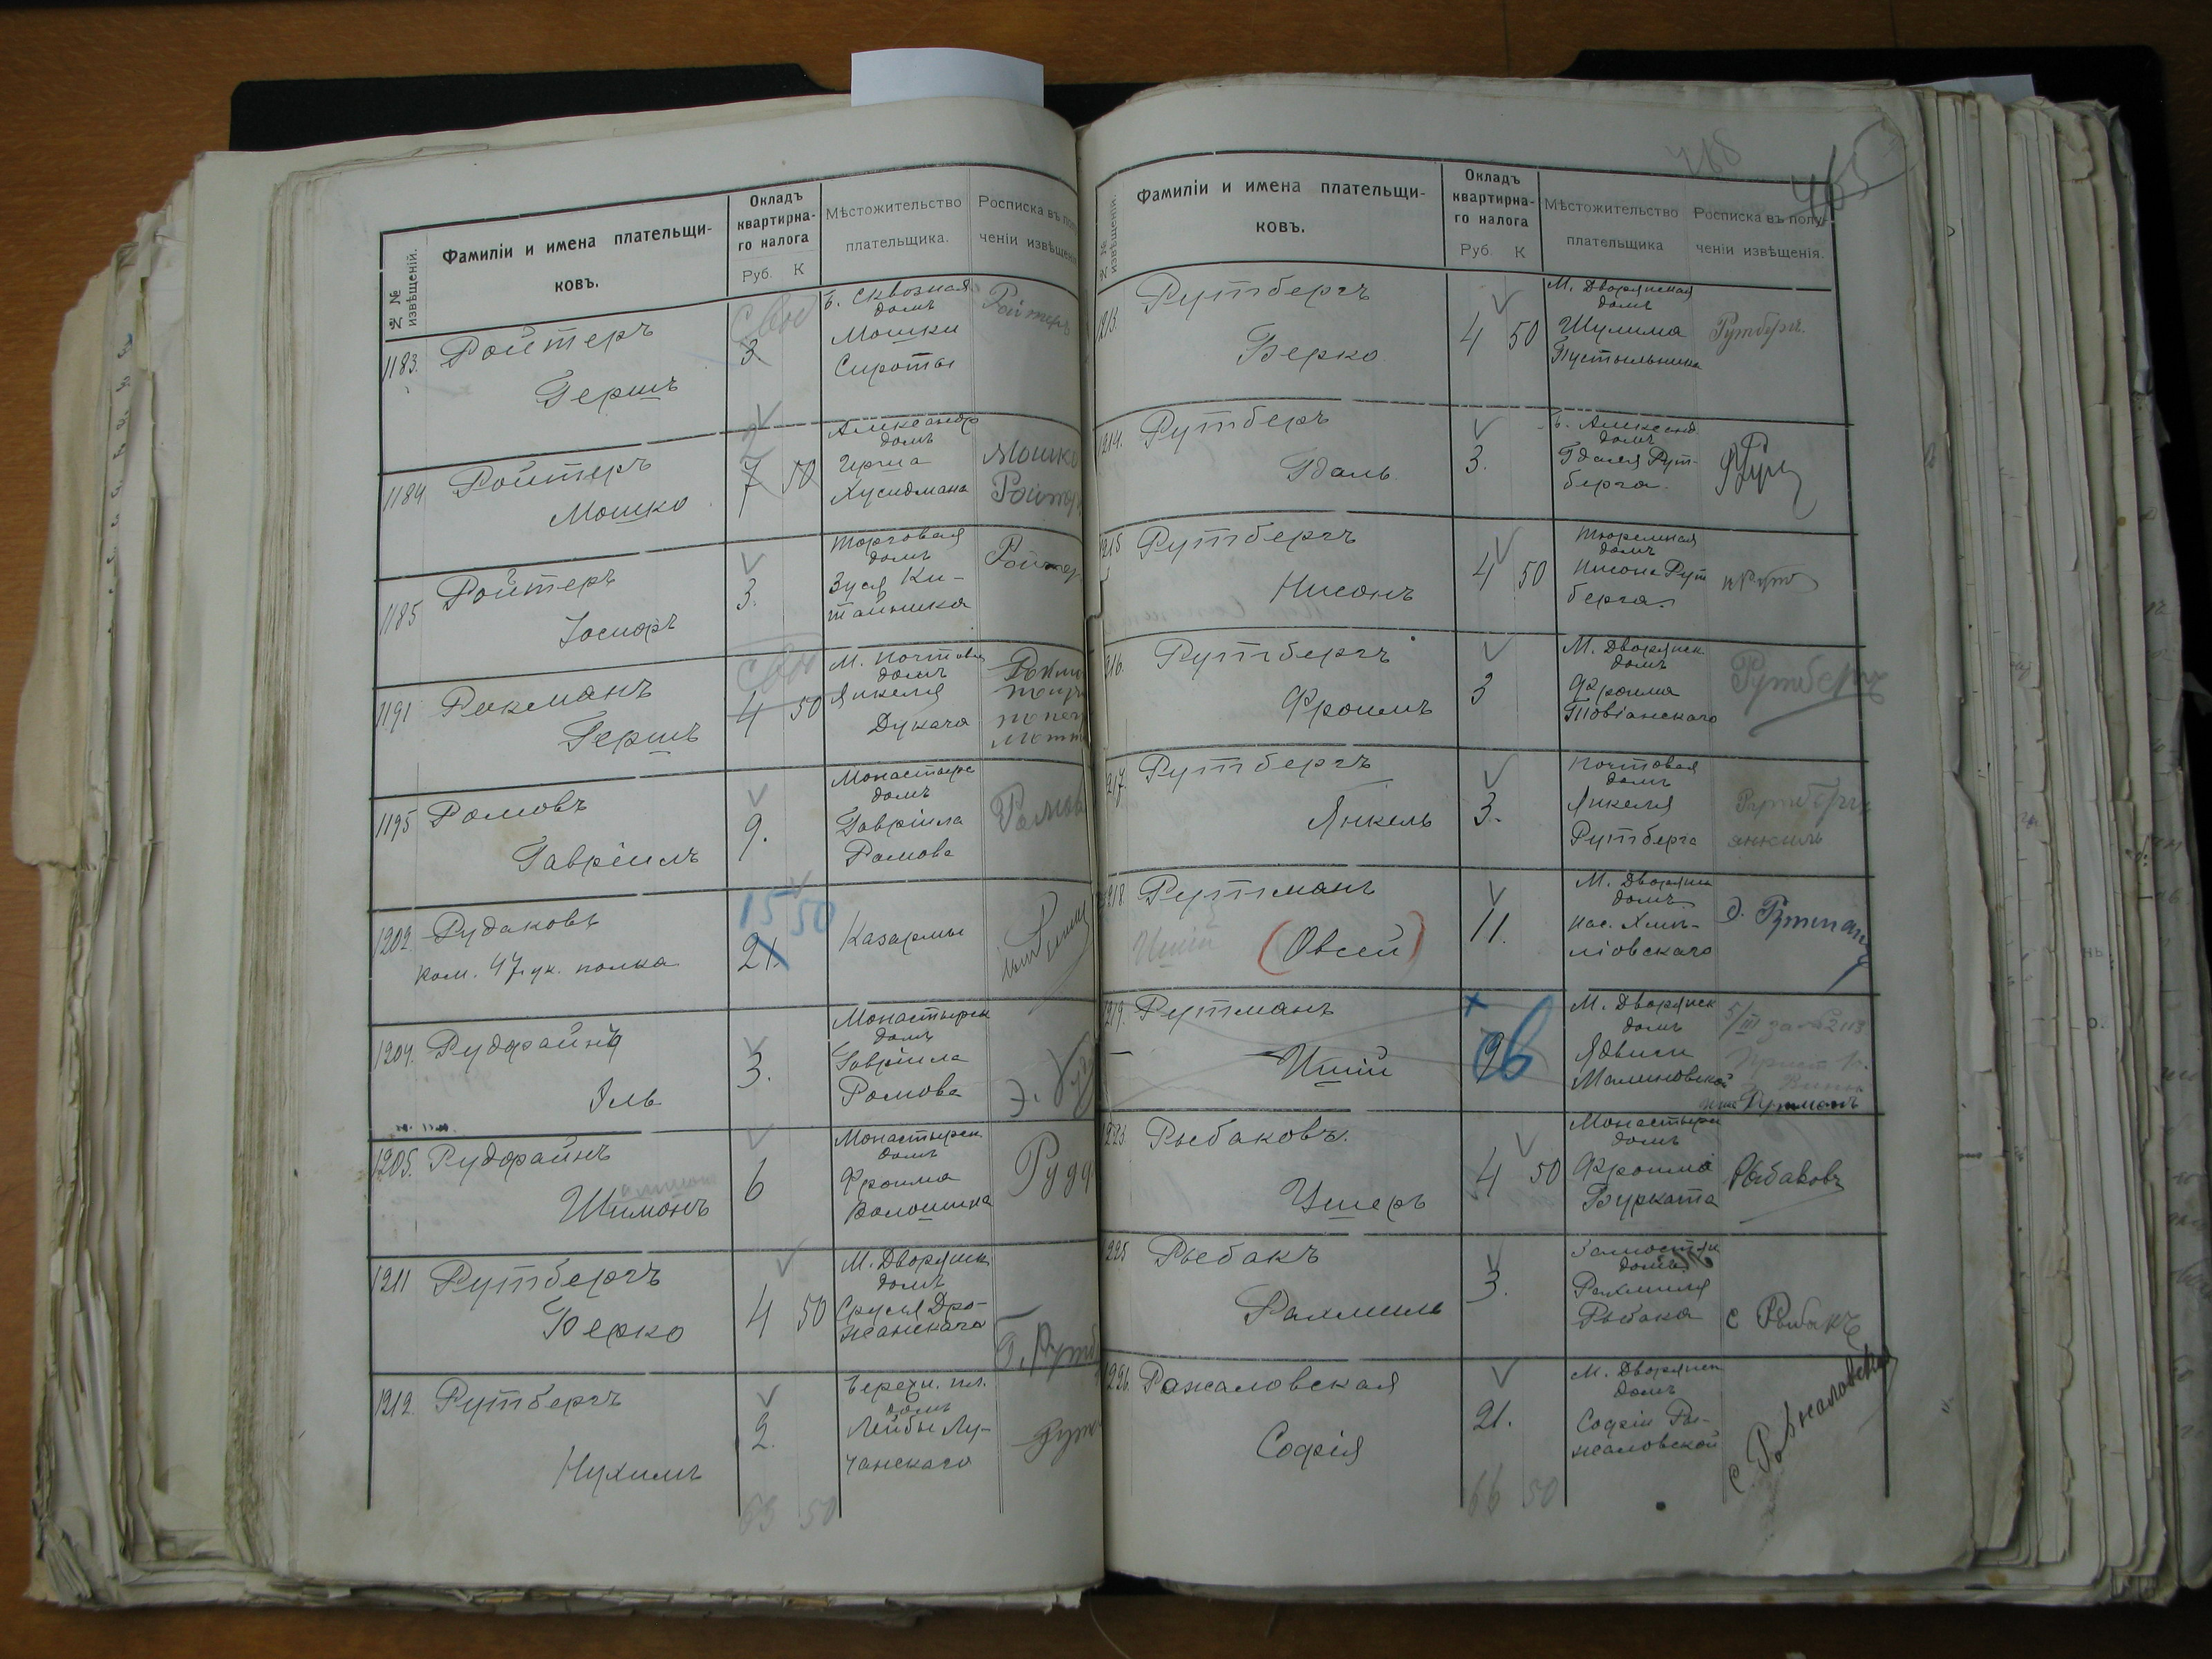 № № извѣщеній.
Фамиліи и имена плательщи-
ковъ.
Окладъ
квартирна-
го налога
Руб. К
Мѣстожительство
плательщика.
Росписка въ полу-
ченіи извѣщенія
1183. Ройтеръ
Гершъ
3
Б. Сквозная
домъ
Мошки
Сироты
Ройтеръ
1184 Ройтеръ
Мошко
7 50
Александр
домъ
Герша
Хусидмана
Мошко
Ройтер
1185 Ройтеръ
3.
Торговая
домъ
Зуся Ки-
тайника
Ройтер
1191 Рокманъ
Гершъ
4 50
М. Почтовая
домъ
Янкеля
Дукача
1195 Ромовъ
Гавріилъ
9.
Монастырс
домъ
Гавріила
Ромова
Ромов
1202 Рудаковъ
Ком. 47 ук. полка
15 50
21.
Казармы
1204. Рудфайнъ
Эль
3.
Монастырск
домъ
Гавріила
Ромова
1205. Рудфайнъ
Шимонъ
6
Монастырск
домъ
Фроима
Волошина
Рудф
1211 Рутбергъ
Берко
4 50
М. Дворянск
домъ
Сруля Дро-
жанскаго
Б. Рутб
1212. Рутбергъ
Нухимъ
2.
домъ
Лейбы Лу-
чанскаго
Рут
63 50
465
№ № извѣщеній.
Фамиліи и имена плательщи-
ковъ.
Окладъ
квартирна-
го налога
Руб. К
Мѣстожительство
плательщика
Росписка въ полу-
ченіи извѣщенія.
1213. Рутбергъ
Берко
4 50
М. Дворянская
домъ
Шулима
Пустыльника
Рутберг.
1214. Рутберъ
Гдаль
3.
Б. Александ
домъ
Гдаля Рут-
берга
1215 Рутбергъ
Нисонъ
4 50
Тюремная
домъ
Нисона Рут
берга.
1216. Рутбергъ
Фроимъ
3
М. Дворянск
домъ
Фроима
Товіанскаго
Рутбергъ
1217. Рутбергъ
Янкель
3.
Почтовая
домъ
Янкеля
Рутберга
Рутбергъ
янкиль
1218. Рутманъ
Иший (Овсей)
11.
М. Дворянск
домъ
Нас. Хмѣ-
ліовскаго
Рутман
1219. Рутманъ
Иший
М. Дворянск
домъ
Ядвиги
Малиновской
5/III за № 2113
Рутманъ
1223. Рыбаковъ.
Ушеръ
4 50
Монастырск
домъ
Фроима
Бурката
Рыбаковъ
1225 Рыбакъ
Рахмиль
3.
Замостян
домъ
Рахмиля
Рыбака
с Рыбакъ
1226. Ражаловская
Софія
21.
М. Дворянск
домъ
Софіи Ра-
жаловской
66 50